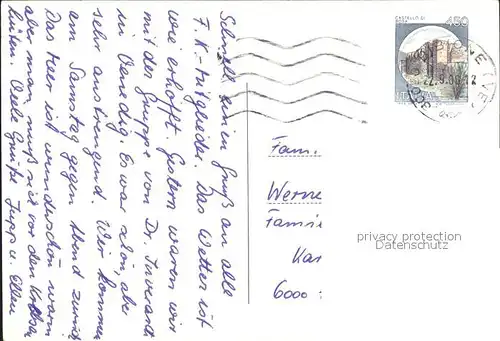 Schnell ein Gruß an alle
F.K.-Mitglieder. Das Wetter ist
wie erhofft. Gestern waren wir
mit der Gruppe von Dr.
in Venedig. Es war schön, aber
sehr anstrengend. Wir kommen
am Samstag gegen Abend zurück
Das Meer ist wunderschön warm
aber man muß sich vor den
hüten. Viele Grüße Jupp u. Ellen
CASTELLO DI
450
Fam.
Werne
Familie
Kar
6000
privacy protection
Datenschutz